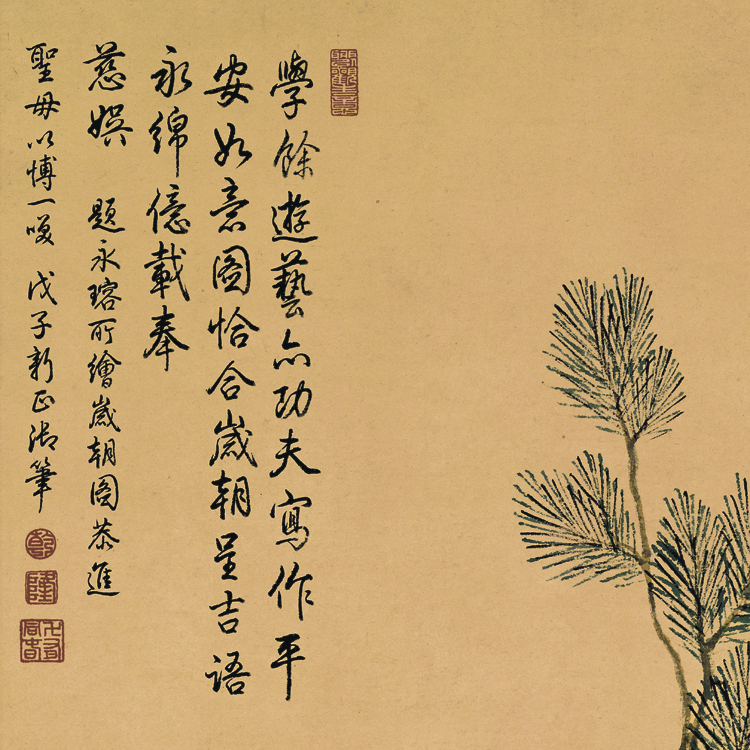 學餘遊藝亦功夫寫作平
安如意圖恰合歲朝呈吉語
永綿億載奉
慈娛 題永瑢所繪歲朝圖恭進
聖母以博一笑 戊子新正御筆
乾
隆